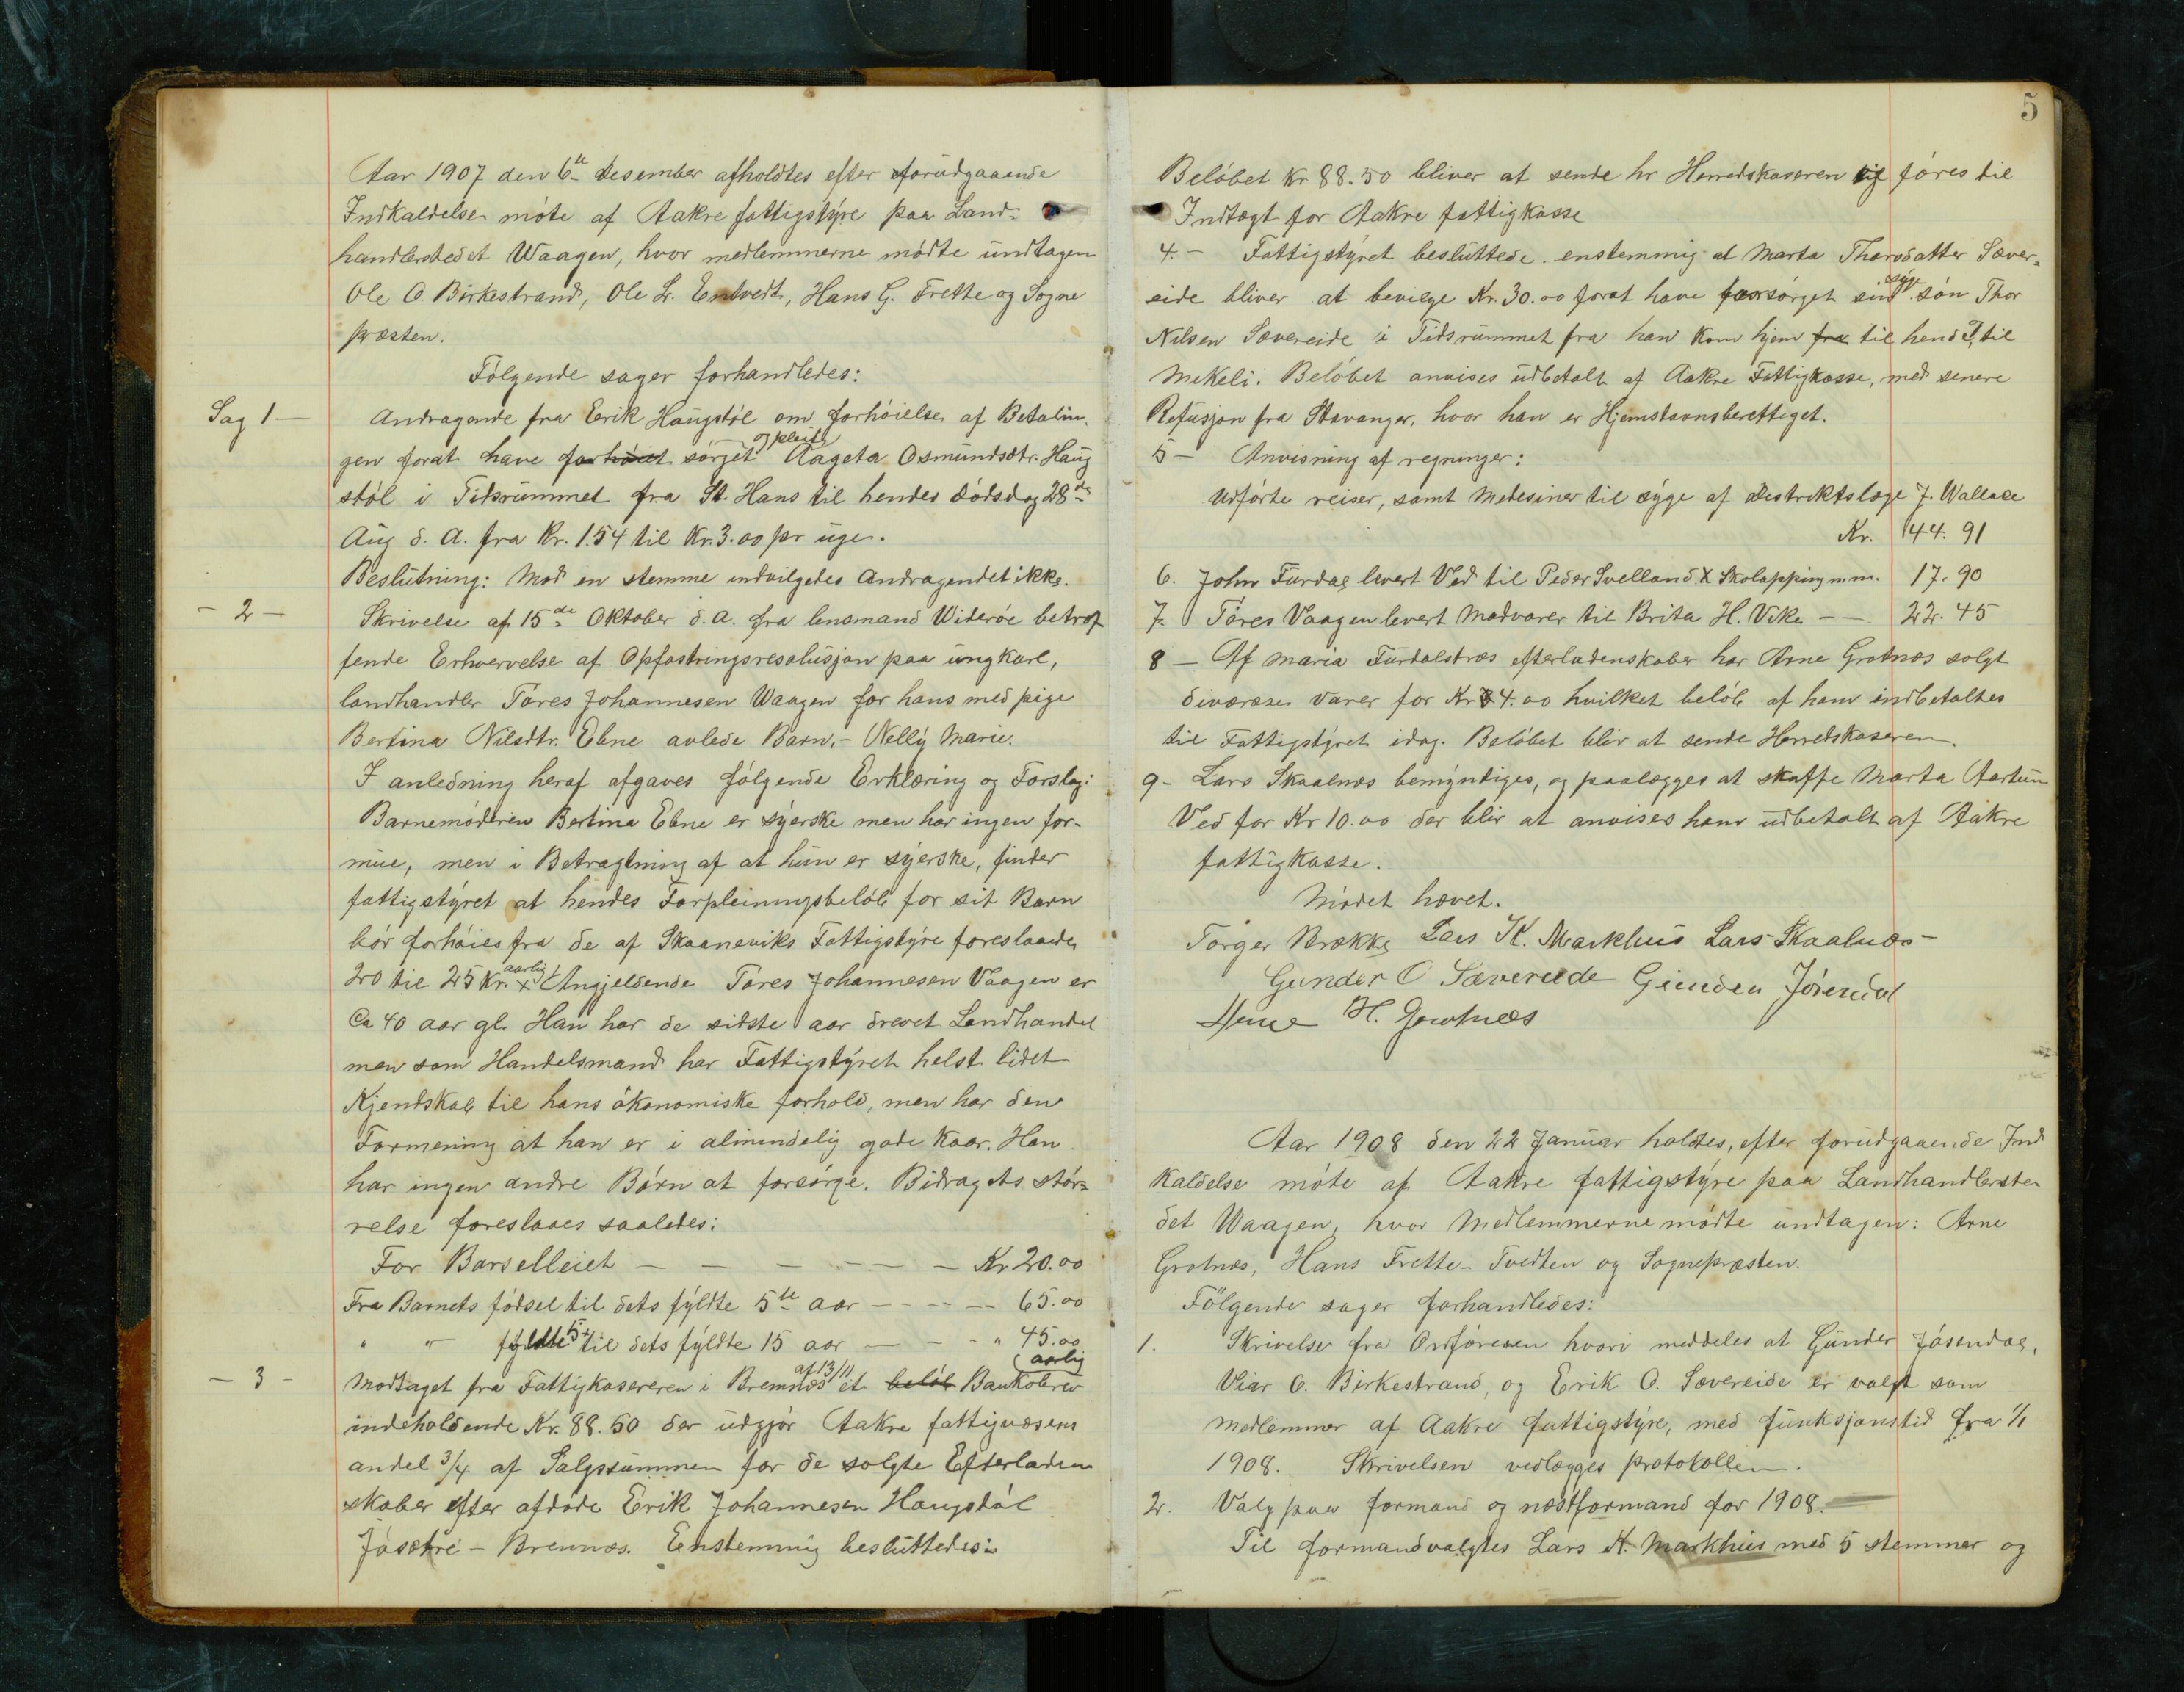 Aar 1907 den 6te desember afholdtes efter forudgaaende
Indkaldelse møte af Aakre fattigstyre paa Land-
handlerstedet Waagen, hvor medlemmerne mødte undtagen
Ole O. Birkestrand, Ole L. Entvedt, Hans G. Frette og Sogne
præsten.
Følgende sager forhandledes:
Sag 1 — Andragende fra Erik Haugstøl om forhøielse af Betalin-
gen forat have forhøiet sørget og pleiet Aageta Osmundsdtr. Haug
støl i Tidsrummet fra St. Hans til hendes dødsdag 28de
Aug d. A. fra Kr. 1.54 til Kr. 3.00 pr uge.
Beslutning: Mod en stemme indvilgedes Andragendet ikke.
— 2 — Skrivelse af 15de Oktober d. A. fra lensmand Widerøe betræf
fende Erhvervelse af Opfostringsresolusjon paa ungkarl,
landhandler Tøres Johannesen Waagen for hans med pige
Bertina Nilsdtr. Ebne avlede Barn,- Nelly Marie.
I anledning heraf afgaves følgende Erklæring og Forslag:
Barnemoderen Bertina Ebne er syerske men har ingen for-
mue, men i Betragtning af at hun er syerske, finder
fattigstyret at hendes Forpleiningsbeløb for sit Barn
bør forhøies fra de af Skaaneviks Fattigstyre foreslaaede
20 til 25 Kr. aarlig x Angjeldende Tøres Johannesen Vaagen er
Ca 40 aar gl. Han har de sidste aar drevet Landhandel
men som Handelsmand har Fattigstyret helst lidet
Kjendskab til hans økonomiske forhold, men har den
Formening at han er i almindelig gode Kaar. Han
har ingen andre Børn at forsørge. Bidragets stør-
relse foreslaaes saaledes:
For Barselleiet — — — — — — Kr 20.00
Fra Barnets fødsel til dets fyldte 5te aar — — — — 65.00
" " fyldte 5te til dets fyldte 15 aar — — - " 45.00
aarlig
— 3 - Modtaget fra Fattigkasereren i Bremnes af 13/11 et beløb Bankobrev
indeholdende Kr. 88.50 der udgjør Aakre fattigvæsens
andel 3/4 af Salgssummen for de solgte Efterladen
skaber efter afdøde Erik Johannesen Haugstøl
Jøsætre - Bremnes. Enstemmig besluttedes:
5
Beløbet Kr 88.50 bliver at sende hr Herredskaseren og føres til
Indtægt for Aakre fattigkasse
4. — Fattigstyret besluttede enstemmig at Marta Thorsdatter Sæver-
eide bliver at bevilge Kr. 30.00 forat have forsørget sin syge søn Thor
Nilsen Sævereide i Tidsrummet fra han kom hjem fra til hende, til
Mekeli. Beløbet anvises udbetalt af Aakre Fattigkasse, med senere
Refusjon fra Stavanger, hvor han er Hjemstavnsberettiget.
5 — Anvisning af regninger:
Udførte reiser, samt Medesiner til syge af Destriktslæge J. Wallace
Kr. 144.91
6. John Furdal levert Ved til Peder Svelland x Skolapping m.m. 17.90
7. Tøres Vaagen levert Madvarer til Brita H. Vike — — 22.45
8 — Af Maria Furdalstræs efterladenskaber har Arne Grotnæs solgt
diværse varer for Kr 34.00 hvilket beløb af ham indbetaltes
til Fattigstyret idag. Beløbet blir at sende Herredskaseren.
9 - Lars Skaalnæs bemyndiges, og paalægges at skaffe Marta Aartun
Ved for Kr 10.00 der blir at anvises ham udbetalt af Aakre
fattigkasse.
Mødet hævet.
Torger Brække Lars K. Markhus Lars Skaalnæs
Gunder O Sævereide Gunder Jøsendal
Arne H. Grotnæs
Aar 1908 den 22 Januar holdtes, efter forudgaaende Ind
kaldelse møte af Aakre fattigstyre paa Landhandlerste-
det Waagen, hvor Medlemmerne mødte undtagen: Arne
Grotnæs, Hans Frette - Tvedten og Sognepræsten.
Følgende sager forhandledes:
1. Skrivelse fra Ordføreren hvori meddeles at Gunder Jøsendal,
Viar O. Birkestrand, og Erik O. Sævereide er valgt som
medlemmer af Aakre fattigstyre, med funksjonstid fra 1/1
1908. Skrivelsen vedlægges protokollen.
2. Valg paa formand og næstformand for 1908.
Til formand valgtes Lars K. Markhus med 5 stemmer og